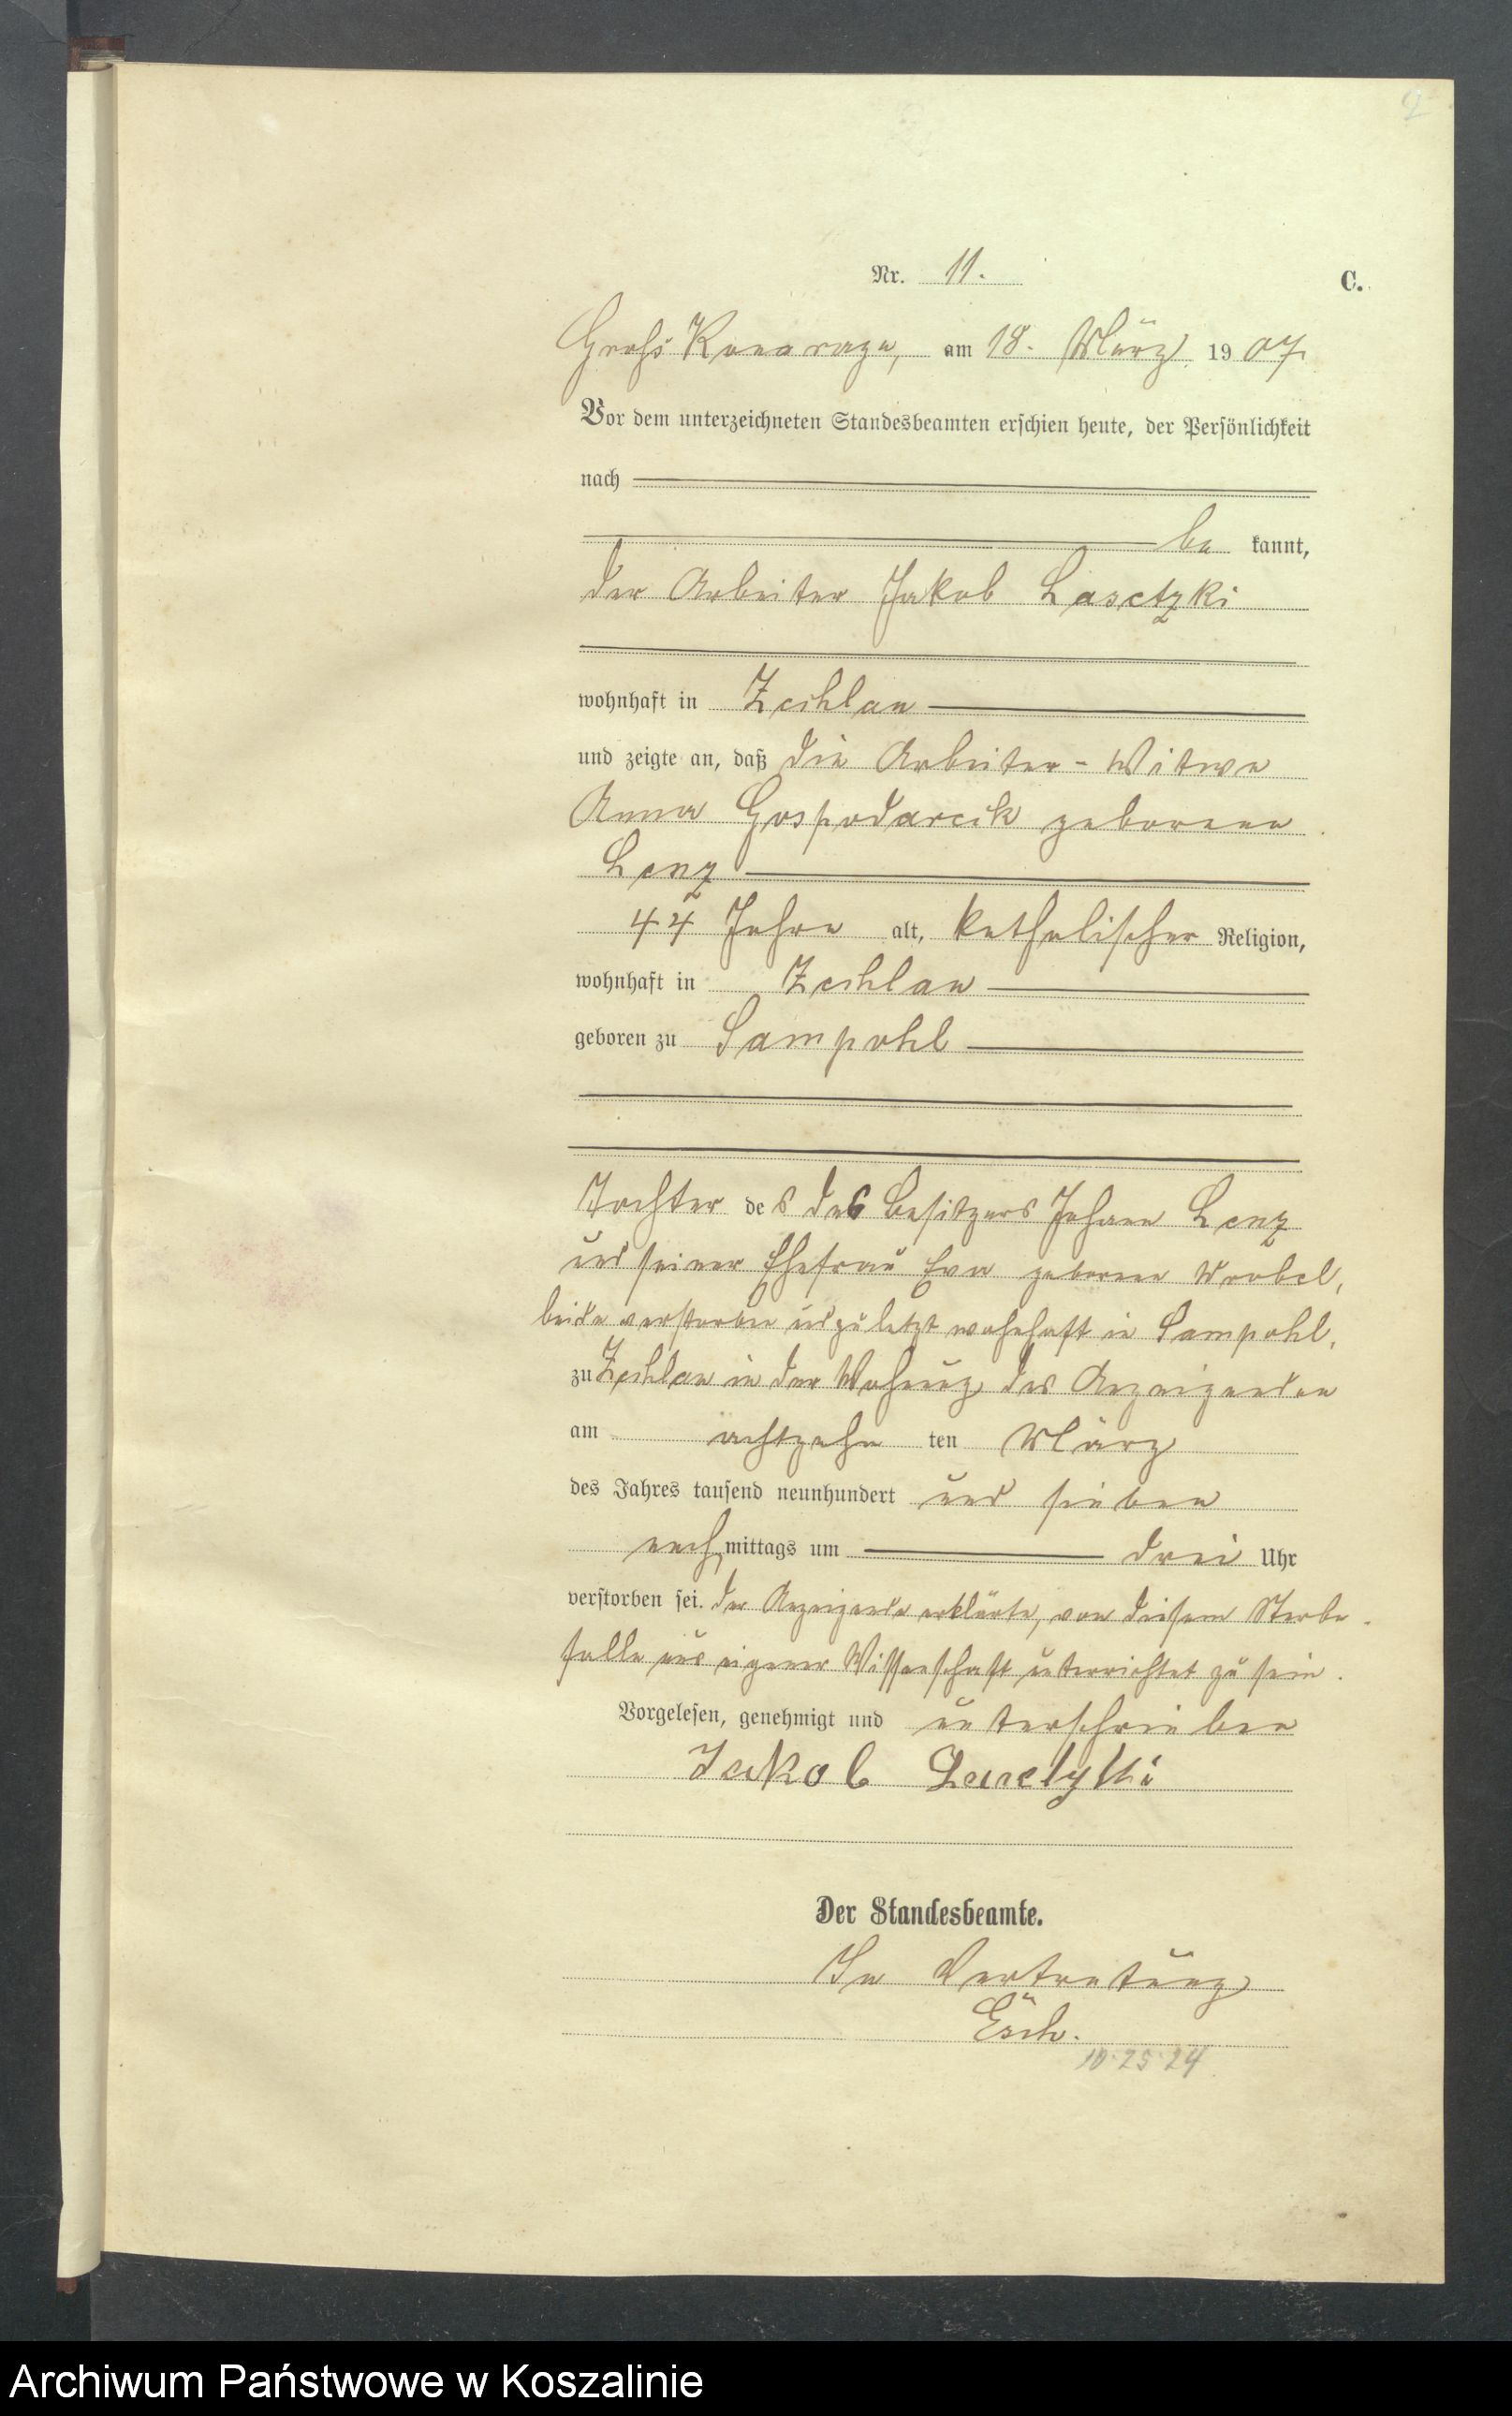 2
Nr. 11. C.
Groß Konarczyn, am 18. März 1907.
Vor dem unterzeichneten Standesbeamten erschien heute, der Persönlichkeit
nach
be kannt,
der Arbeiter Jakob Lasetzki
wohnhaft in Zechlau
und zeigte an, daß die Arbeiter-Witwe
Anna Gospodarcik geborene
Lenz
44 Jahre alt, katholischer Religion,
wohnhaft in Zechlau
geboren zu Sampohl
Tochter des des Besitzers Johann Lenz
und seiner Ehefrau Eva geborene Wrobel,
beide verstorben und zuletzt wohnhaft in Sampohl,
zu Zechlau in der Wohnung des Anzeigenden
am achtzehn ten März
des Jahres tausend neunhundert und sieben
nach mittags um drei Uhr
verstorben sei. Der Anzeigende erklärte, von diesem Sterbe-
falle aus eigener Wissenschaft unterrichtet zu sein.
Vorgelesen, genehmigt und unterschrieben
Jakob Lasetzki
Der Standesbeamte.
In Vertretung
10.25.24
Archiwum Państwowe w Koszalinie